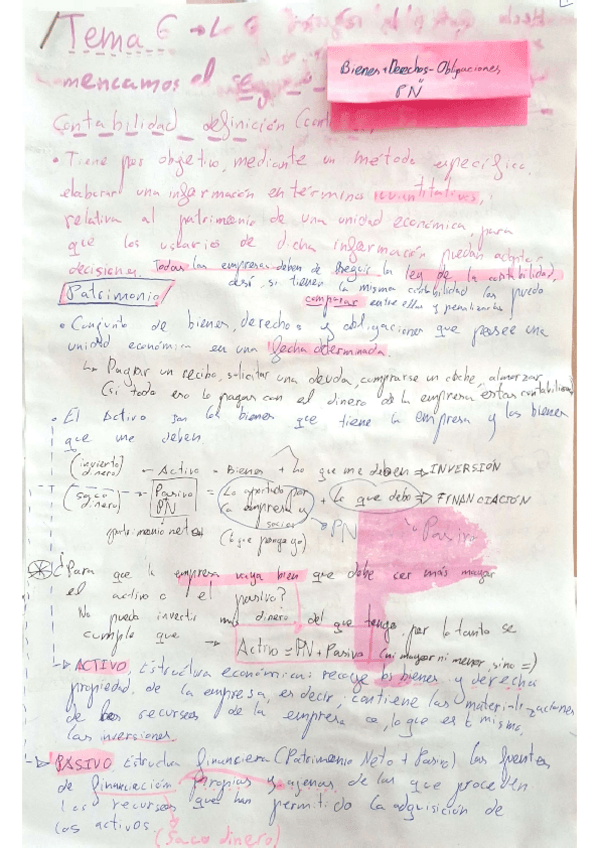 Tema 6
Bienes + Derechos - Obligaciones
PN
mencamos el
Contabilidad definición
• Tiene por objetivo, mediante un método específico,
elaborar una información en términos cuantitativos,
relativa al patrimonio de una unidad económica, para
que los usuarios de dicha información puedan adoptar
decisiones. Todas las empresas deben de seguir la ley de la contabilidad,
así, si tienen la misma contabilidad las puedo
Patrimonio
comparar entre ellas y penalizarlas
• Conjunto de bienes, derechos y obligaciones que posee una
unidad económica en una fecha determinada.
↳ Pagar un recibo, solicitar una deuda, comprarse un coche, almorzar
(si todo eso lo pagas con el dinero de la empresa estas contabilidad)
• El Activo son los bienes que tiene la empresa y los bienes
que me deben
(invierto dinero) - Activo = Bienes + Lo que me deben ⇒ INVERSIÓN
(saco dinero) - Pasivo PN = Lo aportado por la empresa y socios + Lo que debo ⇒ FINANCIACIÓN
patrimonio neto (lo que pongo yo) PN Pasivo
¿Para que la empresa vaya bien que debe ser más mayor
el activo o el pasivo?
No puedo invertir más dinero del que tengo, por lo tanto se
cumple que → Activo = PN + Pasivo (ni mayor ni menor, sino =)
↳ ACTIVO, Estructura económica: recoge los bienes y derechos
propiedad de la empresa, es decir, contiene las materializaciones
de los recursos de la empresa o, lo que es lo mismo,
las inversiones.
↳ PASIVO Estructura financiera (Patrimonio Neto + Pasivo) las fuentes
de financiación propias y ajenas, de las que proceden
los recursos que han permitido la adquisición de
los activos.
(Saco dinero)